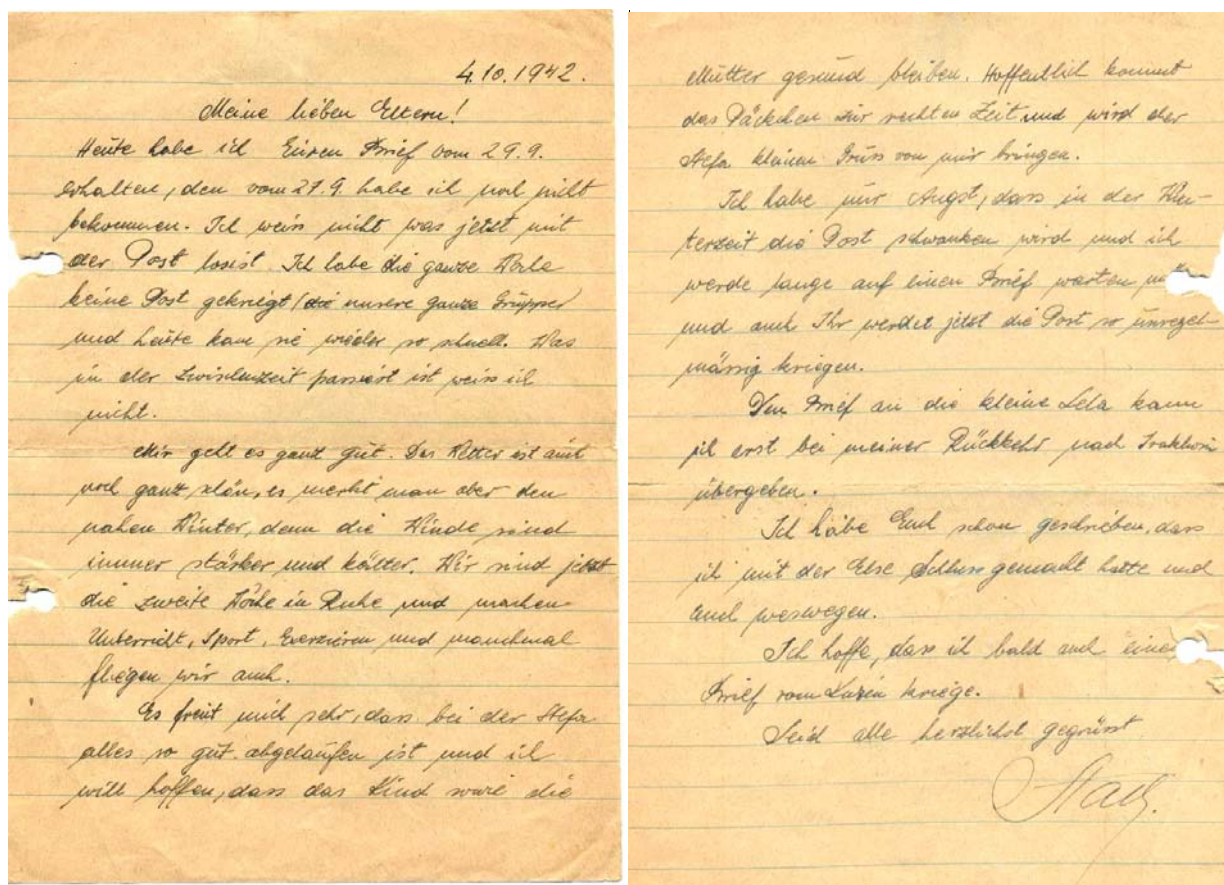 4.10.1942.
Meine lieben Eltern!
Heute habe ich Euren Brief vom 29.9.
erhalten, den vom 27.9. habe ich noch nicht
bekommen. Ich weiss nicht was jetzt mit
der Post los ist. Ich habe die ganze Woche
keine Post gekriegt (die unsere ganze Gruppe)
und heute kam sie wieder so schnell. Was
in der Zwischenzeit passiert ist weiss ich
nicht.
Mir geht es ganz gut. Das Wetter ist auch
noch ganz schön, es merkt man aber den
nahen Winter, denn die Winde sind
immer stärker und kälter. Wir sind jetzt
die zweite Woche in Ruhe und machen
Unterricht, Sport, Exerzieren und manchmal
fliegen wir auch.
Es freut mich sehr, dass bei der Stefa
alles so gut abgelaufen ist und ich
will hoffen, dass das Kind sowie die
Mutter gesund bleiben. Hoffentlich kommt
das Päckchen zur rechten Zeit und wird der
Stefa kleinen Gruss von mir bringen.
Ich habe nur Angst, dass in der Win-
terzeit die Post schwanken wird und ich
werde lange auf einen Brief warten
und auch Ihr werdet jetzt die Post so unregel-
mässig kriegen.
Den Brief an die kleine Lela kann
ich erst bei meiner Rückkehr nach Iraklion
übergeben.
Ich habe Euch schon geschrieben, dass
ich mit der Else Schluss gemacht hatte und
auch weswegen.
Ich hoffe, dass ich bald auch einen
Brief vom kriege.
Seid alle herzlichst gegrüsst